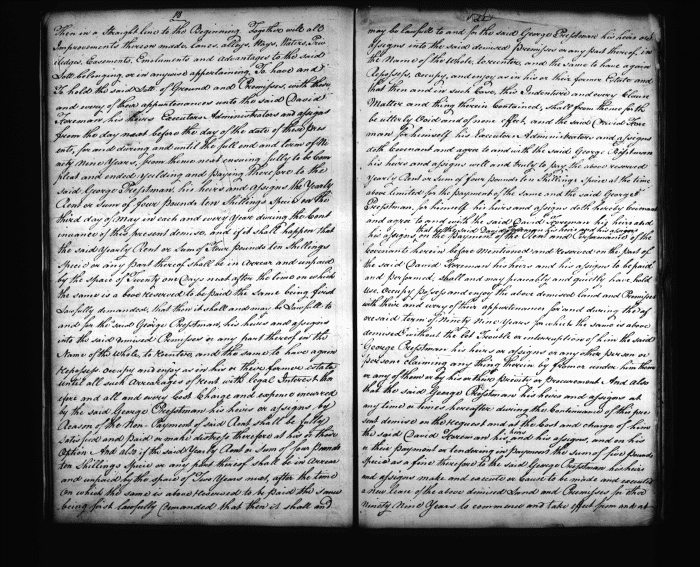 18
Then in a Straight line to the Beginning. Together with all
Improvements thereon made, Lanes, alleys, Ways, Waters, Priv
iledges, Easements, Emoluments and Advantages to the said
Lott belonging or in anywise appertaining. To have and
To hold the said Lott of Ground and Premises with these
and every of their appurtenances unto the said David
Foreman his Heirs Executors Administrators and assigns
from the day next before the day of the date of these Pre
sents, for and during and until the full end and term of Ni
nety Nine Years, from thence next ensuing fully to be Com
pleat and ended yielding and paying therefore to the
said George Presstman, his heirs and assigns the Yearly
Rent or Sum of four pounds ten Shillings Specie on the
third day of May in each and every Year during the Cont
inuance of this present demise, and if it shall happen that
the said Yearly Rent or Sum of Four pounds ten Shillings
Specie or any part thereof shall be in Arrear and unpaid
by the space of Twenty one Days next after the time on which
the same is above reserved to be paid the same being first
Lawfully demanded, that then it shall and may be Lawfull to
and for the said George Presstman, his heirs and assigns
into the said demised Premises or any part thereof in the
Name of the whole, to reenter and the same to have again
repossess occupy and enjoy as in his or their former estate
until all such arrearages of rent with legal Interest ther
efore and all and every Cost Charge and expence incurred
by the said George Presstman his heirs or assigns by
Reason of the Non-Payment of said Rent shall be fully
satisfied and paid or make distress therefore at his or their
Option And also if the said Yearly Rent or Sum of four pounds
ten Shillings Specie or any part thereof shall be in Arrear
and unpaid by the space of Two Years next after the time
on which the same is above Reserved to be paid the same
being first lawfully demanded that then it shall and
may be lawfull to and for the said George Presstman his heirs and
assigns into the said demised Premises or any part thereof, in
the Name of the Whole, to reenter, and the same to have again
Repossess, occupy, and enjoy as in his or their former Estate and
that then and in such Case, this Indenture and every Clause
Matter and thing therein Contained, shall from thence forth
be utterly Void and of none effect, and the said David Fore
man for himself his Executors Administrators and assigns
doth Covenant and agree to and with the said George Presstman
his heirs and assigns well and truly to pay the above reserved
Yearly Rent or Sum of four pounds ten Shillings Specie at the time
above limited for the payment of the same and the said George
Presstman, for himself his heirs and assigns doth hereby Covenant
and agree to and with the said David Foreman his heirs and
that the said David Foreman his heirs and his assigns
his assigns, on the payment of the Rent and Performance of the
Covenants herein before Mentioned and reserved on the part of
the said David Foreman his heirs and assigns to be paid
and performed shall and may peaceably and quietly have hold
use, Occupy possess and enjoy the above demised Land and Premises
with their and every of their appurtenances for and during the af
oresaid term of Ninety Nine Years for which the same is above
demised without the Let Trouble or interruption of him the said
George Presstman his heirs or assigns or any other person or
persons claiming any thing therein by from or under him them
or any of them or by his or their privity or procurement. And also
that the said George Presstman his heirs and assigns at
any time or times hereafter during the Continuance of this pre
sent demise on the Request and at the Cost and charge of him
the said David Foreman his heirs and his assigns, and on his
or their Payment or tendering in Payment the sum of five pounds
Specie as a fine therefore to the said George Presstman his heirs
and assigns make and execute or Cause to be made and executed
a new Lease of the above demised Land and Premises for other
Ninety Nine Years to commence and take effect from and at